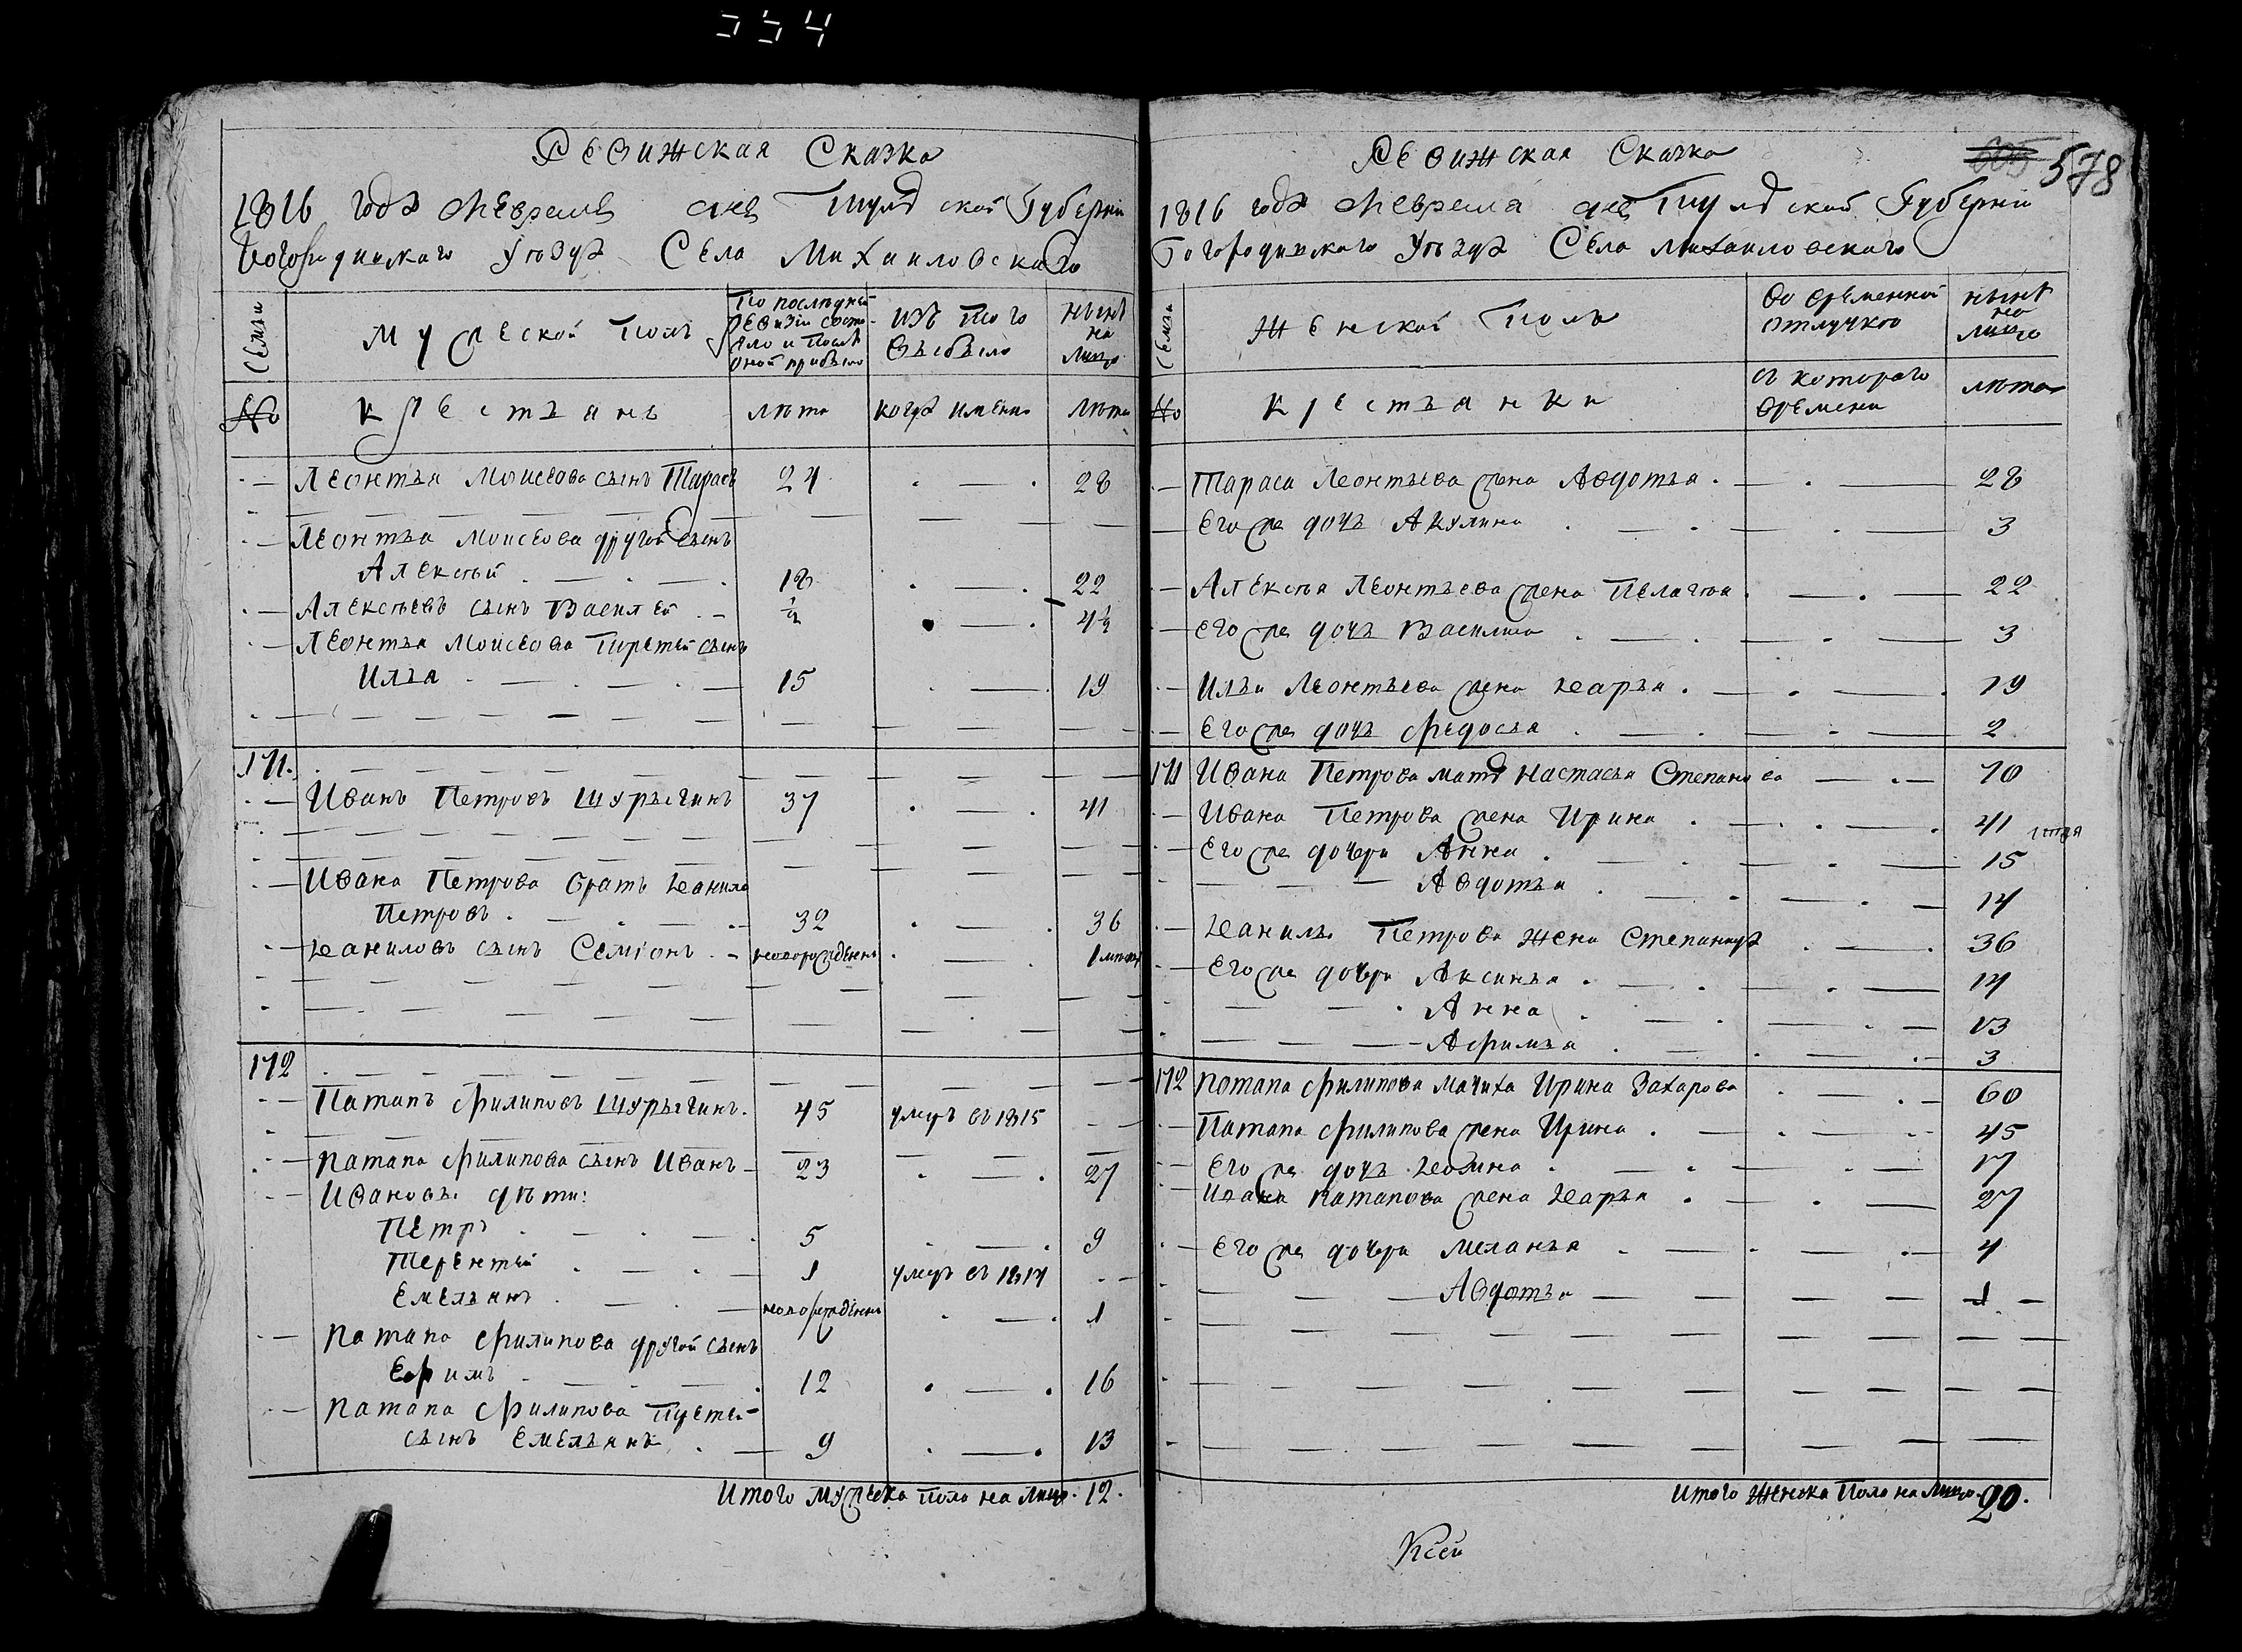 554
Ревижская Сказка
1816 года Февраля дня Тулской Губернiи
Богородицкаго уѣзда Села Михаиловскаго
Семьи
Мужеской полъ
По послѣдней
ревизiи состо
яло и послѣ
оной прибыло
изъ того
выбыло
нынѣ
на
лицо
№
крестьянъ
лѣта
когда имянно
лѣта
Леонтья Моисеова сынъ Тарасъ 24 28
Леонтья Моисеова другой сынъ
Алексѣй 18 22
Алексѣевъ сынъ Василей ½ 4½
Леонтья Моисеова третей сынъ
Илья 15 19
171.
Иванъ Петровъ Шурыгинъ 37 41
Ивана Петрова братъ Данила
Петровъ 32 36
Даниловъ сынъ Семiонъ новорожденъ 1
172
Патапъ Филиповъ Шурыгинъ. 45 умеръ въ 1815
Патапа Филипова сынъ Иванъ 23 27
Ивановы дѣти:
Петръ 5 9
Терентей 1 умеръ въ 1814
Емельянъ новорожденъ 1
Патапа Филипова другой сынъ
Ефимъ 12 16
Патапа Филипова третей
сынъ Емельянъ 9 13
Итого мужеска пола на лицо. 12.
Ревижская Сказка
578
1816 года Февраля дня Тулской Губернiи
Богородицкаго уѣзда Села Михаиловскаго
Семьи
Женской полъ
во временной
отлучкѣ
нынѣ
на
лицо
№
крестьянки
съ котораго
времени
лѣта
Тараса Леонтьева жена Авдотья 28
Его же дочь Акулина 3
Алексѣя Леонтьева жена Пелагѣя 22
Его же дочь Василиса 3
Ильи Леонтьева жена Дарья 19
Его же дочь Федосья 2
171 Ивана Петрова мать Настасья Степанова 70
Ивана Петрова жена Ирина 41
Его же дочери Анна 15
Авдотья 14
Данилы Петрова жена Степанида 36
Его же дочери Аксинья 14
Анна 13
Афимья 3
172 Потапа Филипова мачиха Ирина Захарова 60
Патапа Филипова жена Ирина 45
Его же дочь 17
Ивана Патапова жена Дарья 27
Его же дочери Меланья 4
Авдотья 1
Итого женска пола на лицо. 20.